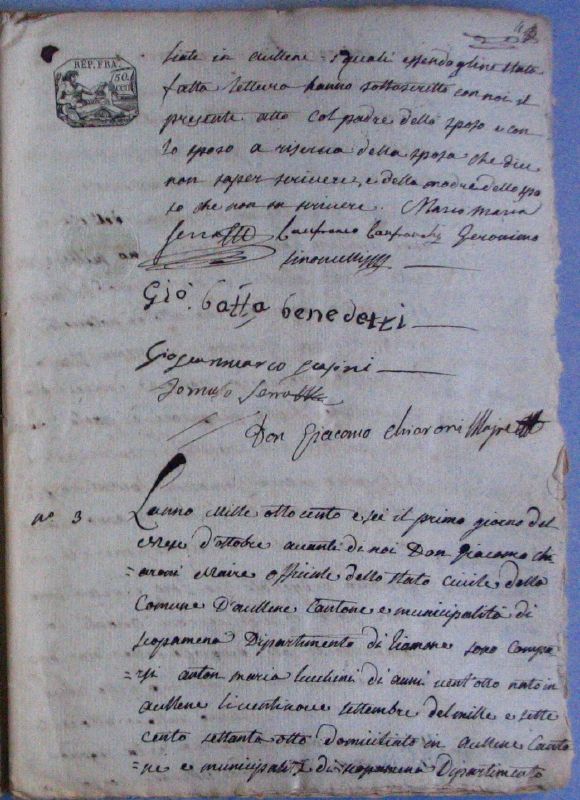 REP. FRA.
50.
CENT
siate in aullene i quali essendogliene stata
fatta lettura hanno sottoscritto con noi il
presente atto col padre dello sposo e con
lo sposo a riserva della sposa che dice
non saper scrivere, e della madre dello spo
so che non sa scrivere. Mario maria
Serra Lanfranco Lanfranchi Geronimo
Simonelli
Gio. batta benedetti
Giovanmarco
Tomaso Serra
Don Giacomo Chiaroni Maire
no 3 L'anno Mille otto cento e sei il primo giorno del
Mese d'ottobre avanti di noi Don Giacomo chi
=aroni Maire officiale dello stato civile della
Comune D'aullene Cantone e municipalità di
scopamena Dipartimento di Liamone sono compa
=rsi anton maria lucchini di anni vent'otto nato in
aullene li ventinove settembre del mille e sette
cento settanta otto domiciliato in aullene Canto
=ne e municipalità di scopamena Dipartimento